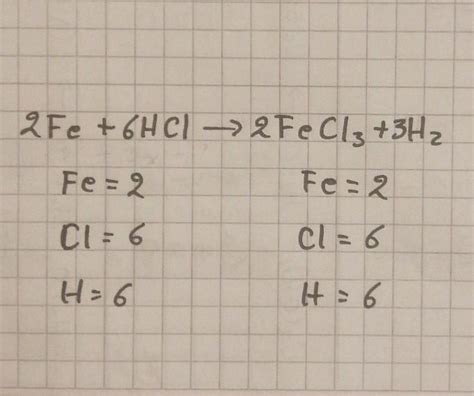 2Fe + 6HCl → 2FeCl₃ + 3H₂
Fe = 2 Fe = 2
Cl = 6 Cl = 6
H = 6 H = 6